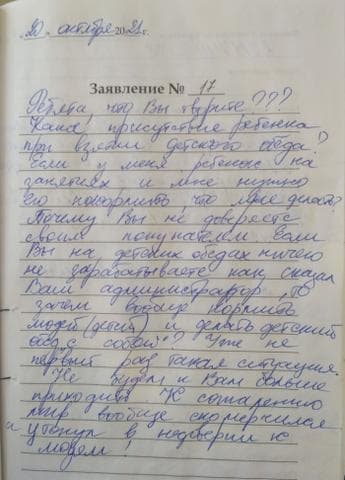 "20" октября 2021 г.
Заявление № 17
Ребята что Вы творите???
Какое присутствие ребенка
при взятии детского обеда?
Если у меня ребенок на
занятиях и мне нужно
его покормить что мне делать?
Почему Вы не доверяете
своим покупателям. Если
Вы на детских обедах ничего
не зарабатываете как сказал
Ваш администратор, то
зачем вообще кормить
людей (детей) и делать детский
обед с собой? Уже не
первый раз такая ситуация.
Не будем к Вам больше
приходить. К сожалению
мир вообще скомерчился
и утонул в недоверии к
людям!